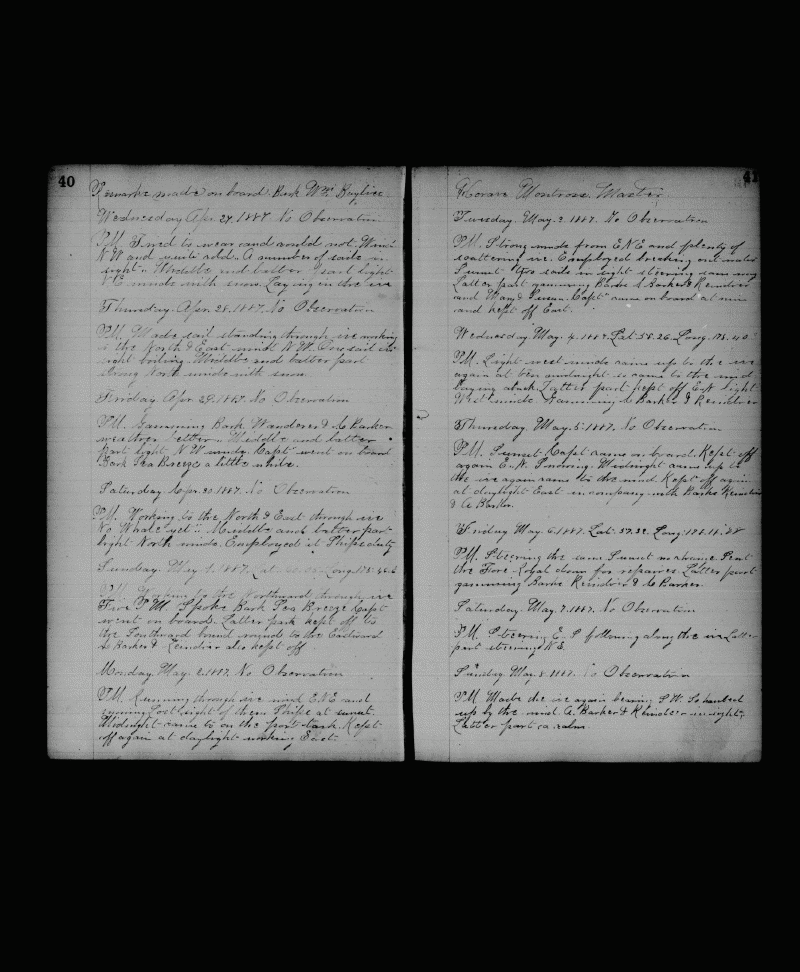 40
Remarks made on board Bark Wm Baylies
Wednesday Apr. 27. 1887 No Observation
P.M. Tried to wear and would not. Wind
N.W and quite cold. A number of sails in
sight. Middle and latter part light
N.E. winds with snow. Laying in the ice
Thursday. Apr. 28. 1887. No Observation
P.M. Made sail standing through ice working
to the North & East wind N.W. sail in
sight boiling. Middle and latter part
Strong North winds with snow.
Friday Apr. 29. 1887. No Observation
P.M. Gamming Bark Wanderer & A Barker
weather better. Middle and latter
part light N.W winds. Capt went on board
Bark Sea Breeze a little while.
Saturday Apr. 30 1887. No Observation
P.M. Working to the North & East through ice
No Whale yet. Middle and latter part
light North winds. Employed at Ships duty
Sunday. May 1. 1887. Lat Long 175.
P.M. Working to the Northward through ice
Five P.M. Spoke Bark Sea Breeze Capt
went on board. Latter part kept off to
the Southward bound round to the Eastward
A Barker & Reindeer also kept off
Monday. May. 2. 1887. No Observation
P.M. Running through ice wind E.N.E and
running lost sight of them Ships at sunset.
Midnight came to on the port tack. Kept
off again at daylight working East.
41
Horace Montross. Master
Tuesday. May. 3. 1887. No Observation
P.M. Strong winds from E.N.E and plenty of
scattering ice. Employed breaking out water
Sunset two sails in sight steering same way
Latter part gamming Barks A Barker & Reindeer
and Mary & Susan. Capt came on board at nine
and kept off East.
Wednesday. May. 4. 1887. Lat 58. 26. Long. 178. 40
P.M. Light west winds came up to the ice
again at ten midnight so came to the wind
laying aback. Latter part kept off E.N light
West winds. Gamming A Barker & Reindeer
Thursday. May. 5. 1887. No Observation
P.M. Sunset Capt came on board. Kept off
again E.N. Snowing. Midnight came up to
the ice again came to the wind. Kept off again
at daylight East in company with Barks Reindeer
& A Barker.
Friday May. 6. 1887. Lat. 59. 32. Long. 178.
P.M. Steering the same Sunset no change. Sent
the Fore Royal down for repaires. Latter part
gamming Barks Reindeer & A Barker.
Saturday. May. 7. 1887. No Observation
P.M. Steering E. S following along the ice Latter
part steering N.E.
Sunday. May. 8. 1887. No Observation
P.M. Made the ice again bearing S.W. So hauled
up by the wind. A. Barker & Reindeer in sight.
Latter part a calm